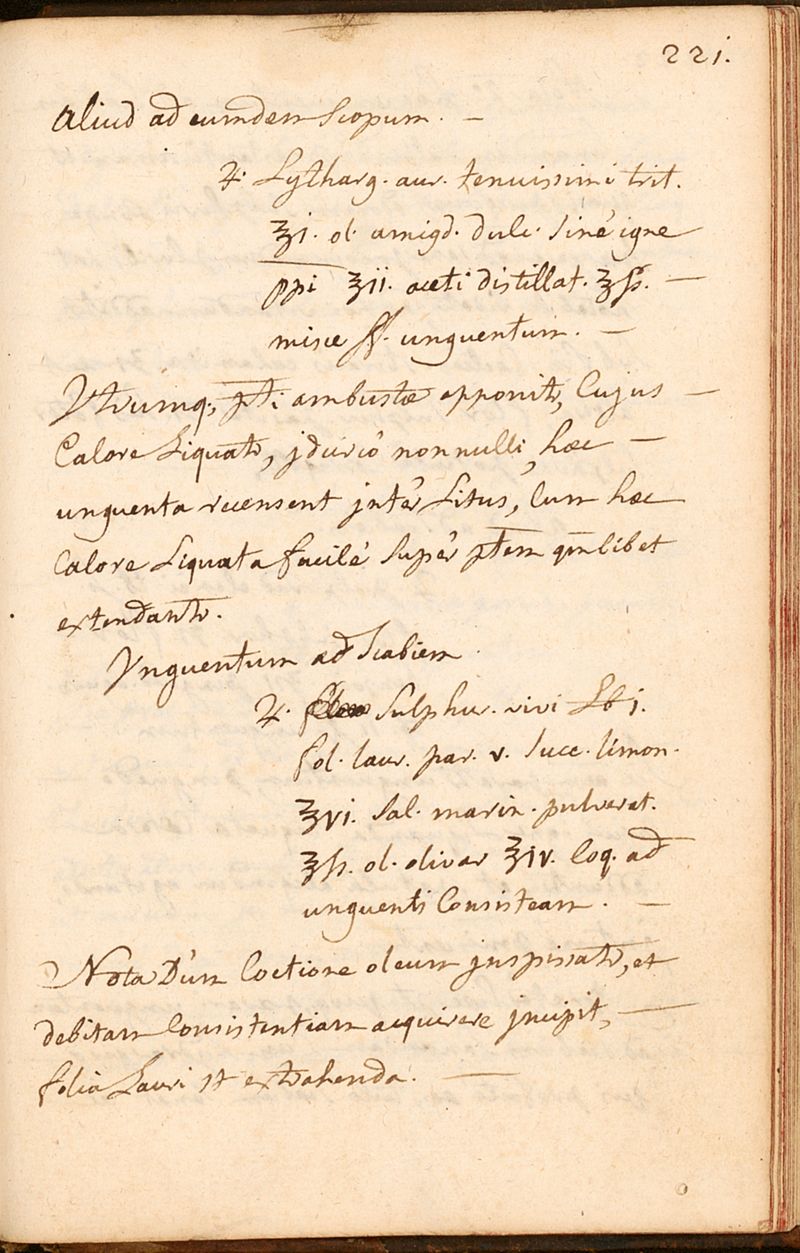 221.
Aliud ad eumdem Scopum. —
♃. Lytharg. aur. tenuissimi trit.
℥j. ol. amigd. dulc. Sinè igne
ppi ℥ii. aceti distillat. ℥ß. —
misce ff. unguentum. —
Vtrumq; pti ambustæ opponitr, Cujus —
Calore Liquatr, jdcircò nonnulli hæc —
unguenta recensent jntèr Litus, Cum hæc
Calore Liquata facilè Supèr ptem qmlibet
extendantr.
Vnguentum ad Scabiem.
♃. Sulphur. vivi ℔j.
fol. laur. par. v. Succ. limon.
℥vi. Sal. marin. pulverat.
℥ß. ol. olivar ℥iv. Coq. ad
unguenti Consisteam. —
Nota Dùm Coctione oleum jnspissatr, et
debitam Consistentiam acquirere jncipit, —
folia Lauri st extrahenda. —